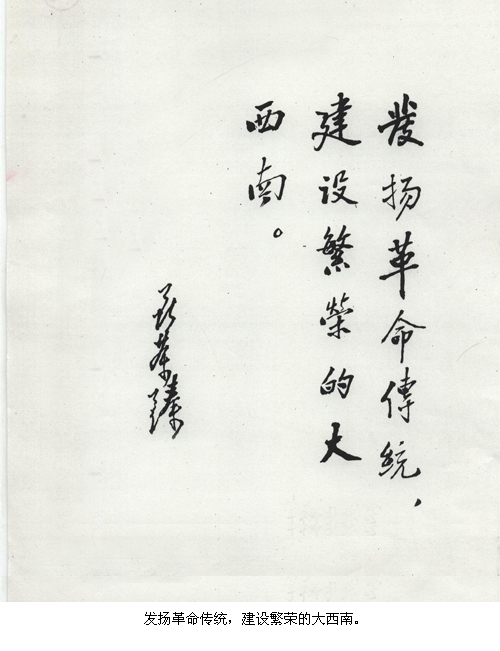 發扬革命傳統，
建设繁榮的大
西南。
聂荣臻
发扬革命传统，建设繁荣的大西南。